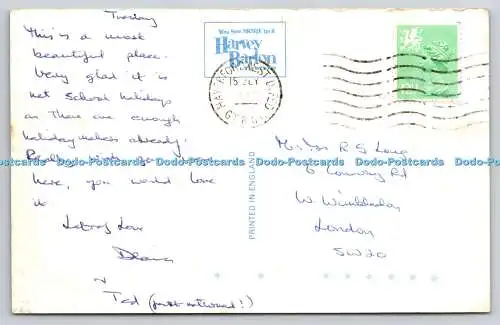 Tuesday
This is a most
beautiful place.
Very glad it is
not School holidays
as There are enough
holiday makers already.
here, you would love
it
Lots of Love
Diana
+
Ted (just retired!)
You See MORE on a
Harvey
Barton
HAVERFORDWEST DYFED
15 JLY
PRINTED IN ENGLAND
Mr & Mrs R G Long
6 Conway Rd
W. Wimbledon
London
SW20
Dodo-Postcards Dodo-Postcards Dodo-Postcards Dodo-Postcards Dodo-Postcards Dodo-Postcards